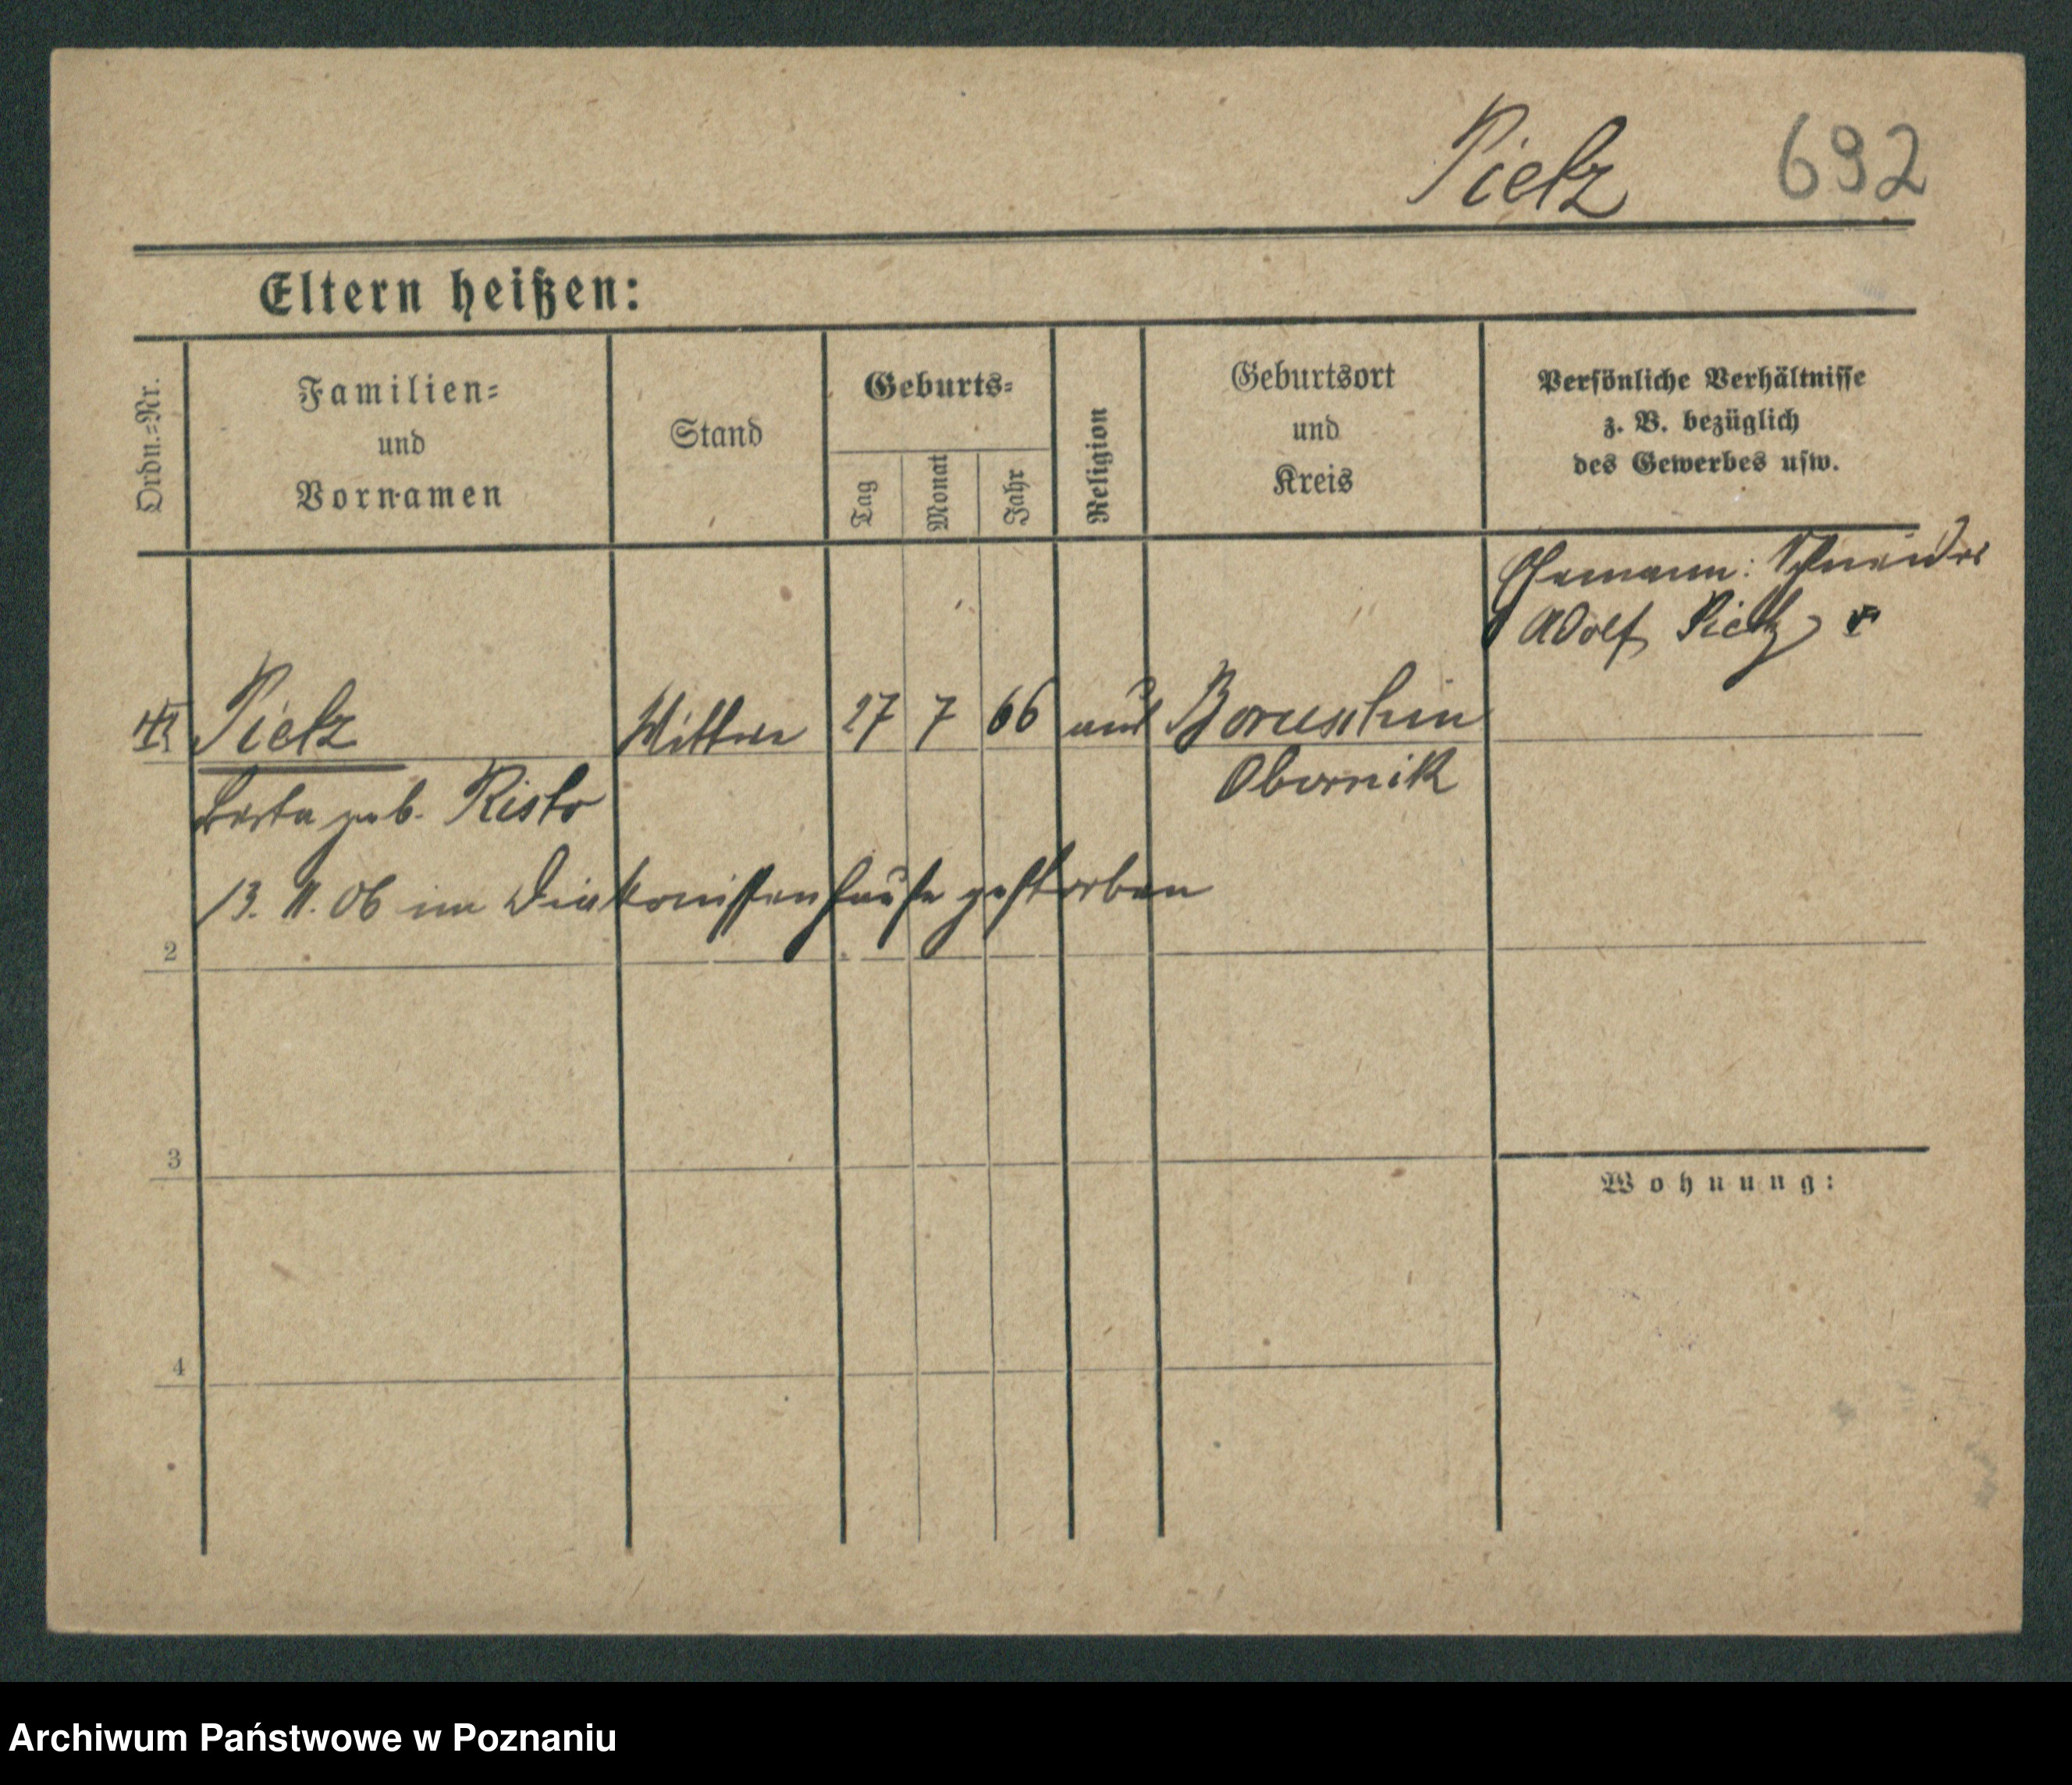 Pielz 692
Eltern heißen:
Ordn.=Nr.
Familien=
und
Vornamen
Stand
Geburts=
Tag
Monat
Jahr
Religion
Geburtsort
und
Kreis
Persönliche Verhältnisse
z. B. bezüglich
des Gewerbes usw.
Ehemann: Schneider
Adolf Pielz
Pielz Witwe 27 7 66 Boruschin
Berta geb. Obornik
13. 11. 06 im Diakonissenhause gestorben
2
3
Wohnung:
4
Archiwum Państwowe w Poznaniu